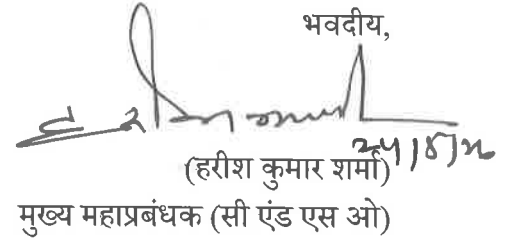 भवदीय,
(हरीश कुमार शर्मा)
मुख्य महाप्रबंधक (सी एंड एस ओ)